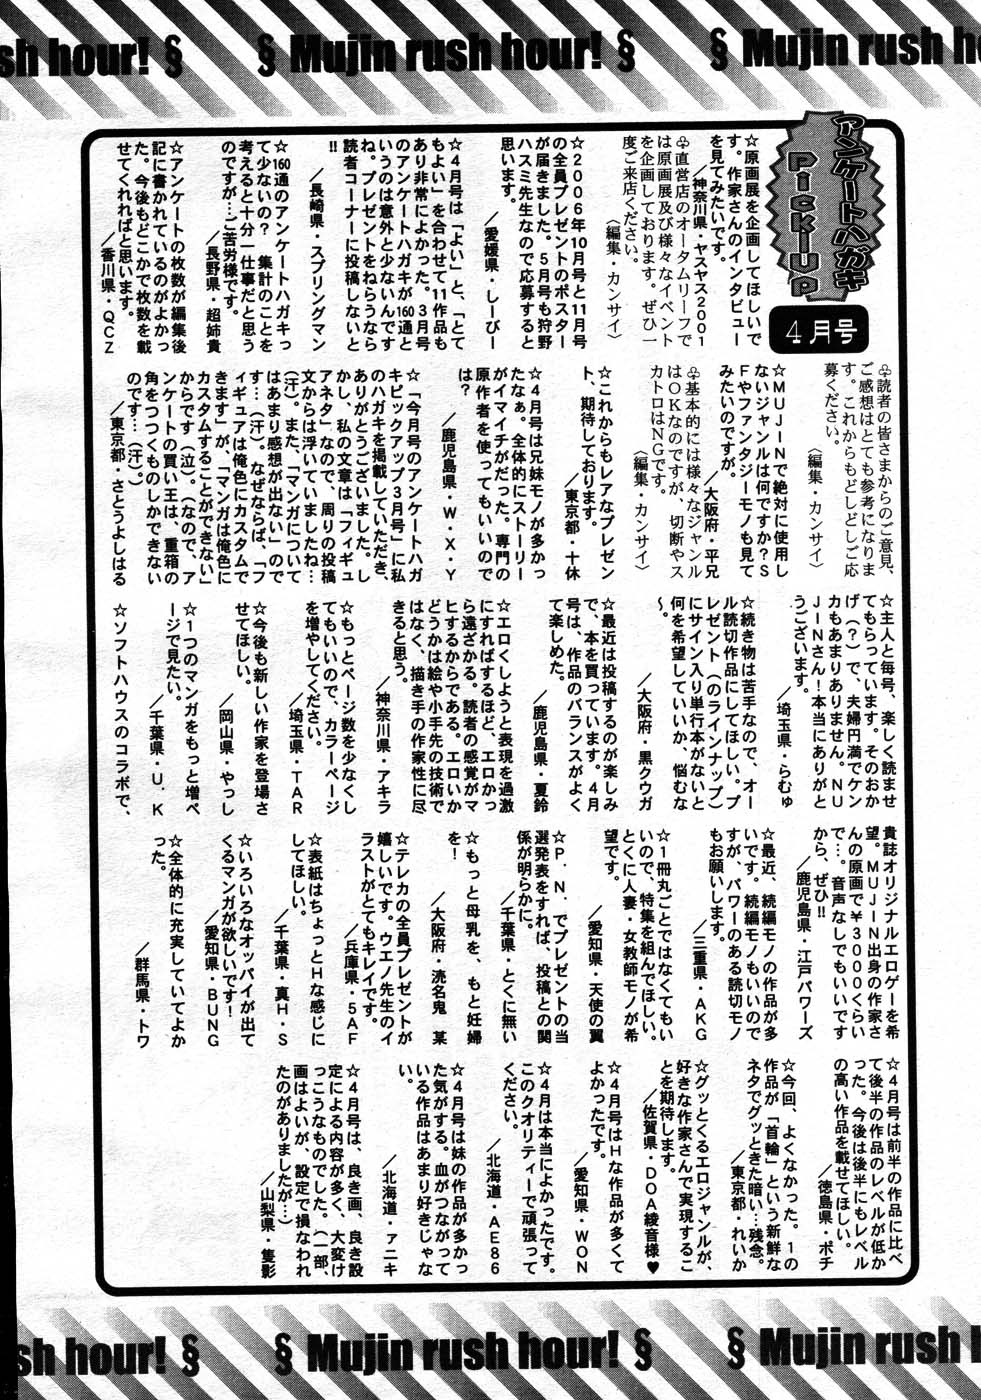 sh hour! § § Mujin rush hour! § § Mujin rush h
アンケートハガキ
PickUp
4月号
☆原画展を企画してほしいで
す。作家さんのインタビュー
を見てみたいです。
／神奈川県・ヤスヤス2001
♧直営店のオータムリーフで
は原画展及び様々なイベント
を企画しております。ぜひ一
度ご来店ください。
〈編集・カンサイ〉
☆2006年10月号と11月号
の全員プレゼントのポスター
が届きました。5月号も狩野
ハスミ先生なので応募すると
思います。
／愛媛県・しーぴー
☆4月号は「よい」と、「とて
もよい」を合わせて11作品も
あり非常によかった。3月号
のアンケートハガキが160通と
いうのは意外と少ないんです
ね。プレゼントをねらうなら
読者コーナーに投稿しないと
!!
／長崎県・スプリングマン
☆160通のアンケートハガキっ
て少ないの？ 集計のことを
考えると十分一仕事だと思う
のですが…ご苦労様です。
／長野県・超姉貴
☆アンケートの枚数が編集後
記に書かれているのがよかっ
た。今後もどこかで枚数を載
せてくれればと思います。
／香川県・QCZ
♧読者の皆さまからのご意見、
ご感想はとても参考になりま
す。これからもどしどしご応
募ください。
〈編集・カンサイ〉
☆MUJINで絶対に使用し
ないジャンルは何ですか？S
Fやファンタジーモノも見て
みたいのですが。
／大阪府・平兄
♧基本的には様々なジャンル
はOKなのですが、切断やス
カトロはNGです。
〈編集・カンサイ〉
☆これからもレアなプレゼン
ト、期待しております。
／東京都・十休
☆4月号は兄妹モノが多かっ
たなぁ。全体的にストーリー
がイマイチだった。専門の
原作者を使ってもいいので
は？
／鹿児島県・W・X・Y
☆「今月号のアンケートハガ
キピックアップ3月号」に私
のハガキを掲載していただき、
ありがとうございました。し
かし、私の文章は「フィギュ
アネタ」なので、周りの投稿
文からは浮いていましたね…
（汗）。また、「マンガについて
はあまり感想が出ない」ので
す…（汗）。なぜならば、「フ
ィギュアは俺色にカスタムで
きます」が、「マンガは俺色に
カスタムすることができない」
からです（泣）。（なので、ア
ンケートの買い王は、重箱の
角をつつくものしかできない
のです…（汗）。
／東京都・さとうよしはる
☆主人と毎号、楽しく読ませ
てもらっています。そのおか
げ（？）で、夫婦円満でケン
カもあまりありません。MU
JINさん！本当にありがと
うございます。
／埼玉県・らむゅ
☆続き物は苦手なので、オー
ル読切作品にしてほしい。プ
レゼント（のラインナップ）
にサイン入り単行本がないと
何を希望していいか、悩むな
〜。
／大阪府・黒クウガ
☆最近は投稿するのが楽しみ
で、本を買っています。4月
号は、作品のバランスがよく
て楽しめた。
／鹿児島県・夏鈴
☆エロくしようと表現を過激
にすればするほど、エロかっ
ら遠ざかる。読者の感覚がマ
ヒするからである。エロいか
どうかは絵や小手先の技術で
はなく、描き手の作家性に尽
きると思う。
／神奈川県・アキラ
☆もっとページ数を少なくし
てもいいので、カラーページ
を増やしてください。
／埼玉県・TAR
☆今後も新しい作家を登場さ
せてほしい。
／岡山県・やっし
☆1つのマンガをもっと増ペ
ージで見たい。
／千葉県・U.K
☆ソフトハウスのコラボで、
貴誌オリジナルエロゲーを希
望。MUJIN出身の作家さ
んの原画で¥3000くらい
で…。音声なしでもいいです
から、ぜひ!!
／鹿児島県・江戸パワーズ
☆最近、続編モノの作品が多
いです。続編モノもいいので
すが、パワーのある読切モノ
もお願いします。
／三重県・AKG
☆1冊丸ごとではなくてもい
いので、特集を組んでほしい。
とくに人妻・女教師モノが希
望です。
／愛知県・天使の翼
☆P.N.でプレゼントの当
選発表をすれば、投稿との関
係が明らかに。
／千葉県・とくに無い
☆もっと母乳を、もと妊婦
を！
／大阪府・滂名鬼 某
☆テレカの全員プレゼントが
嬉しいです。ウエノ先生のイ
ラストがとてもキレイです。
／兵庫県・5AF
☆表紙はちょっとHな感じに
してほしい。
／千葉県・真H・S
☆いろいろなオッパイが出て
くるマンガが欲しいです！
／愛知県・BUNG
☆全体的に充実していてよか
った。
／群馬県・トワ
☆4月号は前半の作品に比べ
て後半の作品のレベルが低か
った。今後は後半にもレベル
の高い作品を載せてほしい。
／徳島県・ポチ
☆今回、よくなかった。1の
作品が「首輪」という新鮮な
ネタでグッときた暗い…残念。
／東京都・れいか
☆グッとくるエロジャンルが、
好きな作家さんで実現するこ
とを期待します。
／佐賀県・DOA綾音様♥
☆4月号はHな作品が多くて
よかったです。
／愛知県・WON
☆4月は本当によかったです。
このクオリティーで頑張って
ください。
／北海道・AE86
☆4月号は妹の作品が多かっ
た気がする。血がつながって
いる作品はあまり好きじゃな
い。
／北海道・ァニキ
☆4月号は、良き画、良き設
定による内容が多く、大変け
っこうなものでした。（一部、
画はよいが、設定で損なわれ
たのがありましたが…）
／山梨県・隻影
sh hour! § § Mujin rush hour! § § Mujin rush